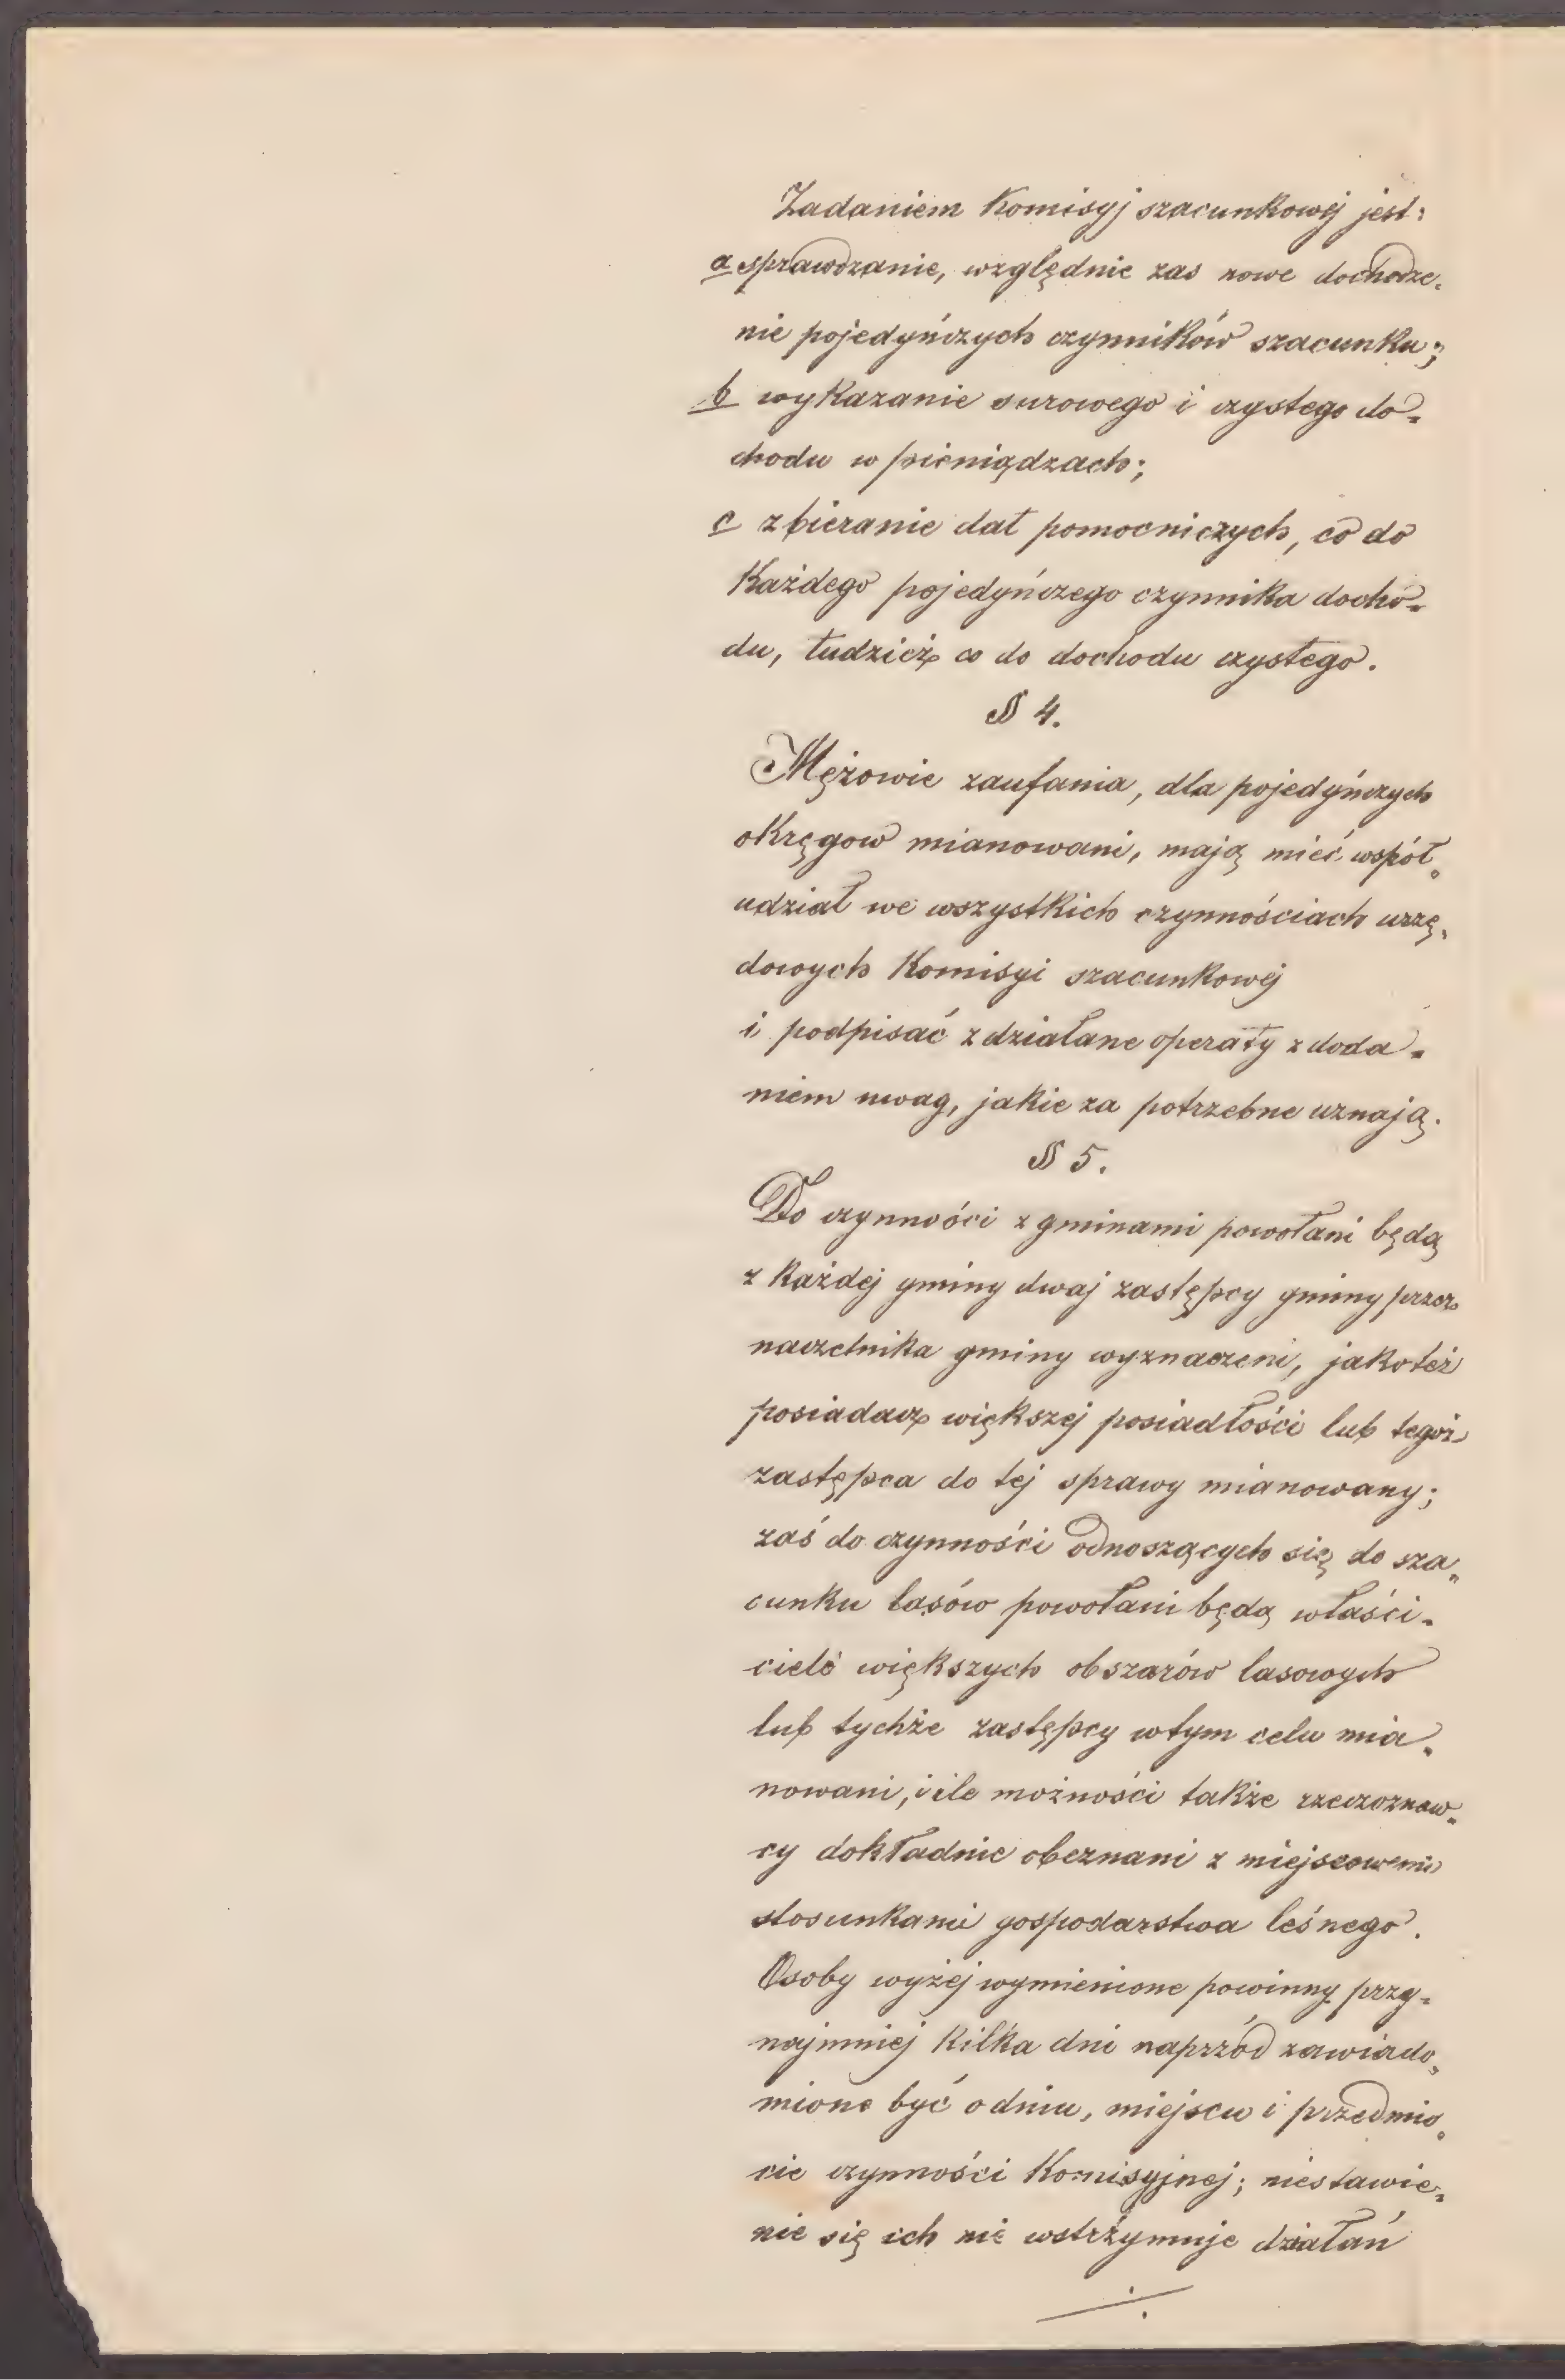 Zadaniem Komisyj szacunkowéj jest:
a sprawdzanie, względnie zas nowe dochodze-
nie pojedyńczych czynników szacunku;
b wykazanie surowego i czystego do-
chodu w pieniądzach;
c zbieranie dat pomocniczych, co do
Każdego pojedyńczego czynnika docho-
du, tudzież co do dochodu czystego.
§ 4.
Mężowie zaufania, dla pojedyńczych
okręgow mianowani, mają mieć współ-
udział we wszystkich czynnościach urzę-
dowych Komisyi szacunkowéj
i podpisać zdziałane operaty z doda-
niem uwag, jakie za potrzebne uznają.
§ 5.
Do czynności z gminami powołani będą
z Każdéj gminy dwaj zastępcy gminy przez
naczelnika gminy wyznaczeni, jakoteż
posiadacz większéj posiadłości lub tegoż
zastępca do téj sprawy mianowany;
zaś do czynności odnoszących się do sza-
cunku lasów powołani będą właści-
ciele większych obszarów lasowych
lub tychże zastępcy w tym celu mia-
nowani, i ile możności także rzeczoznaw-
cy dokładnie obeznani z miejscowemi
stosunkami gospodarstwa leśnego.
Osoby wyżéj wymienione powinny przy-
najmniéj Kilka dni naprzód zawiado-
mione być o dniu, miejscu i przedmio-
cie czynności Komisyjnéj; niestawie-
nie się ich nie wstrzymuje działań